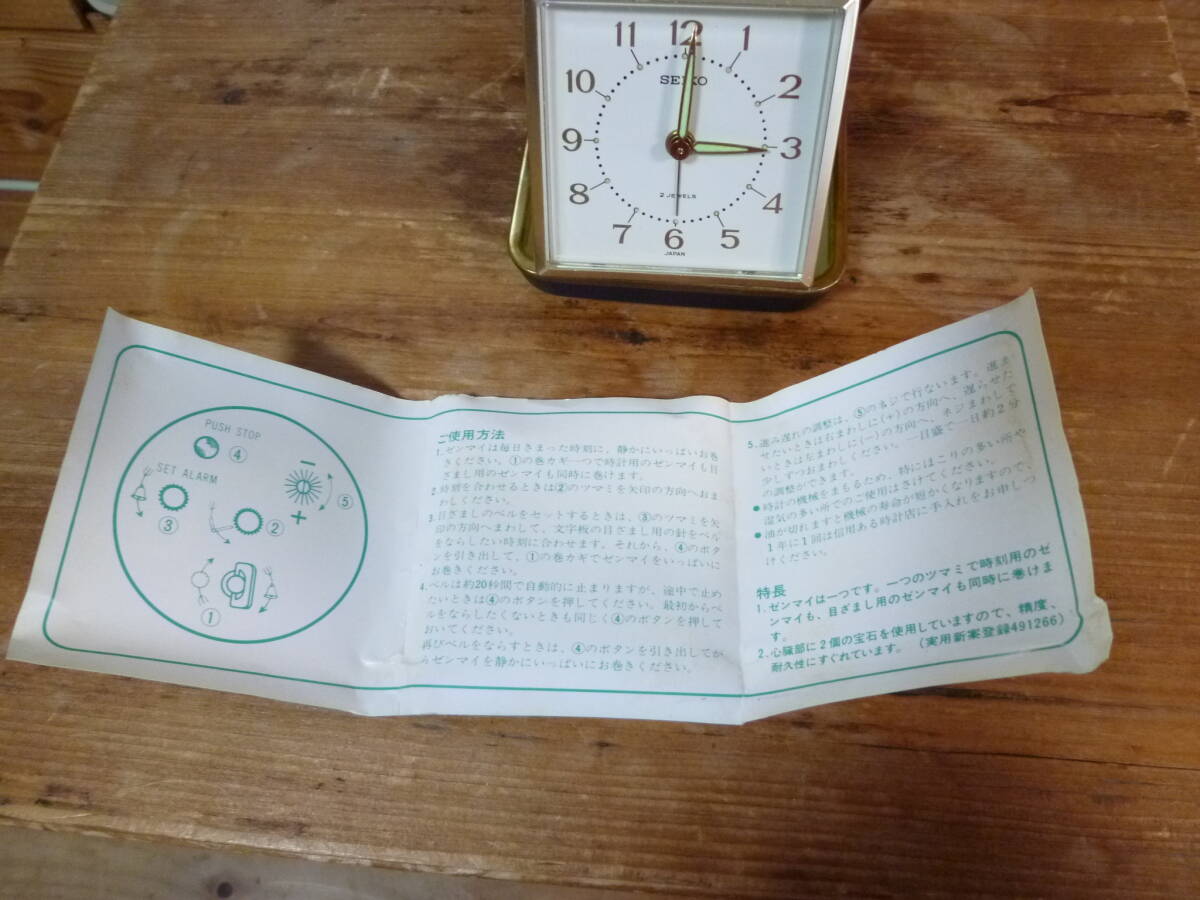 11 12 1
10 2
SEIKO
9 3
8 4
2 JEWELS
7 6 5
JAPAN
PUSH STOP
④
SET ALARM
−
⑤
③
②
+
①
ご使用方法
1.ゼンマイは毎日きまった時刻に，静かにいっぱいお巻
きください。①の巻カギ一つで時計用のゼンマイも目
ざまし用のゼンマイも同時に巻けます。
2.時刻を合わせるときは②のツマミを矢印の方向へおま
わしください。
3.目ざましのベルをセットするときは、③のツマミを矢
印の方向へまわして、文字板の目ざまし用の針をベル
をならしたい時刻に合わせます。それから、④のボタ
ンを引き出して、①の巻カギでゼンマイをいっぱいに
お巻きください。
4.ベルは約20秒間で自動的に止まりますが、途中で止め
たいときは④のボタンを押してください。最初からベ
ルをならしたくないときも同じく④のボタンを押して
おいてください。
再びベルをならすときは、④のボタンを引き出してか
らゼンマイを静かにいっぱいにお巻きください。
5.進み遅れの調整は、⑤のネジで行ないます。進ま
せたいときは右まわしに(+)の方向へ、遅らせた
いときは左まわしに(−)の方向へ、ネジまわしで
少しずつおまわしください。一目盛で一日約2分
の調整ができます。
●時計の機械をまもるため、特にほこりの多い所や
湿気の多い所でのご使用はさけてください。
●油が切れますと機械の寿命が短かくなりますので、
1年に1回は信用ある時計店に手入れをお申しつ
けください。
特長
1.ゼンマイは一つです。一つのツマミで時刻用のゼ
ンマイも、目ざまし用のゼンマイも同時に巻けま
す。
2.心臓部に2個の宝石を使用していますので、精度、
耐久性にすぐれています。（実用新案登録491266）